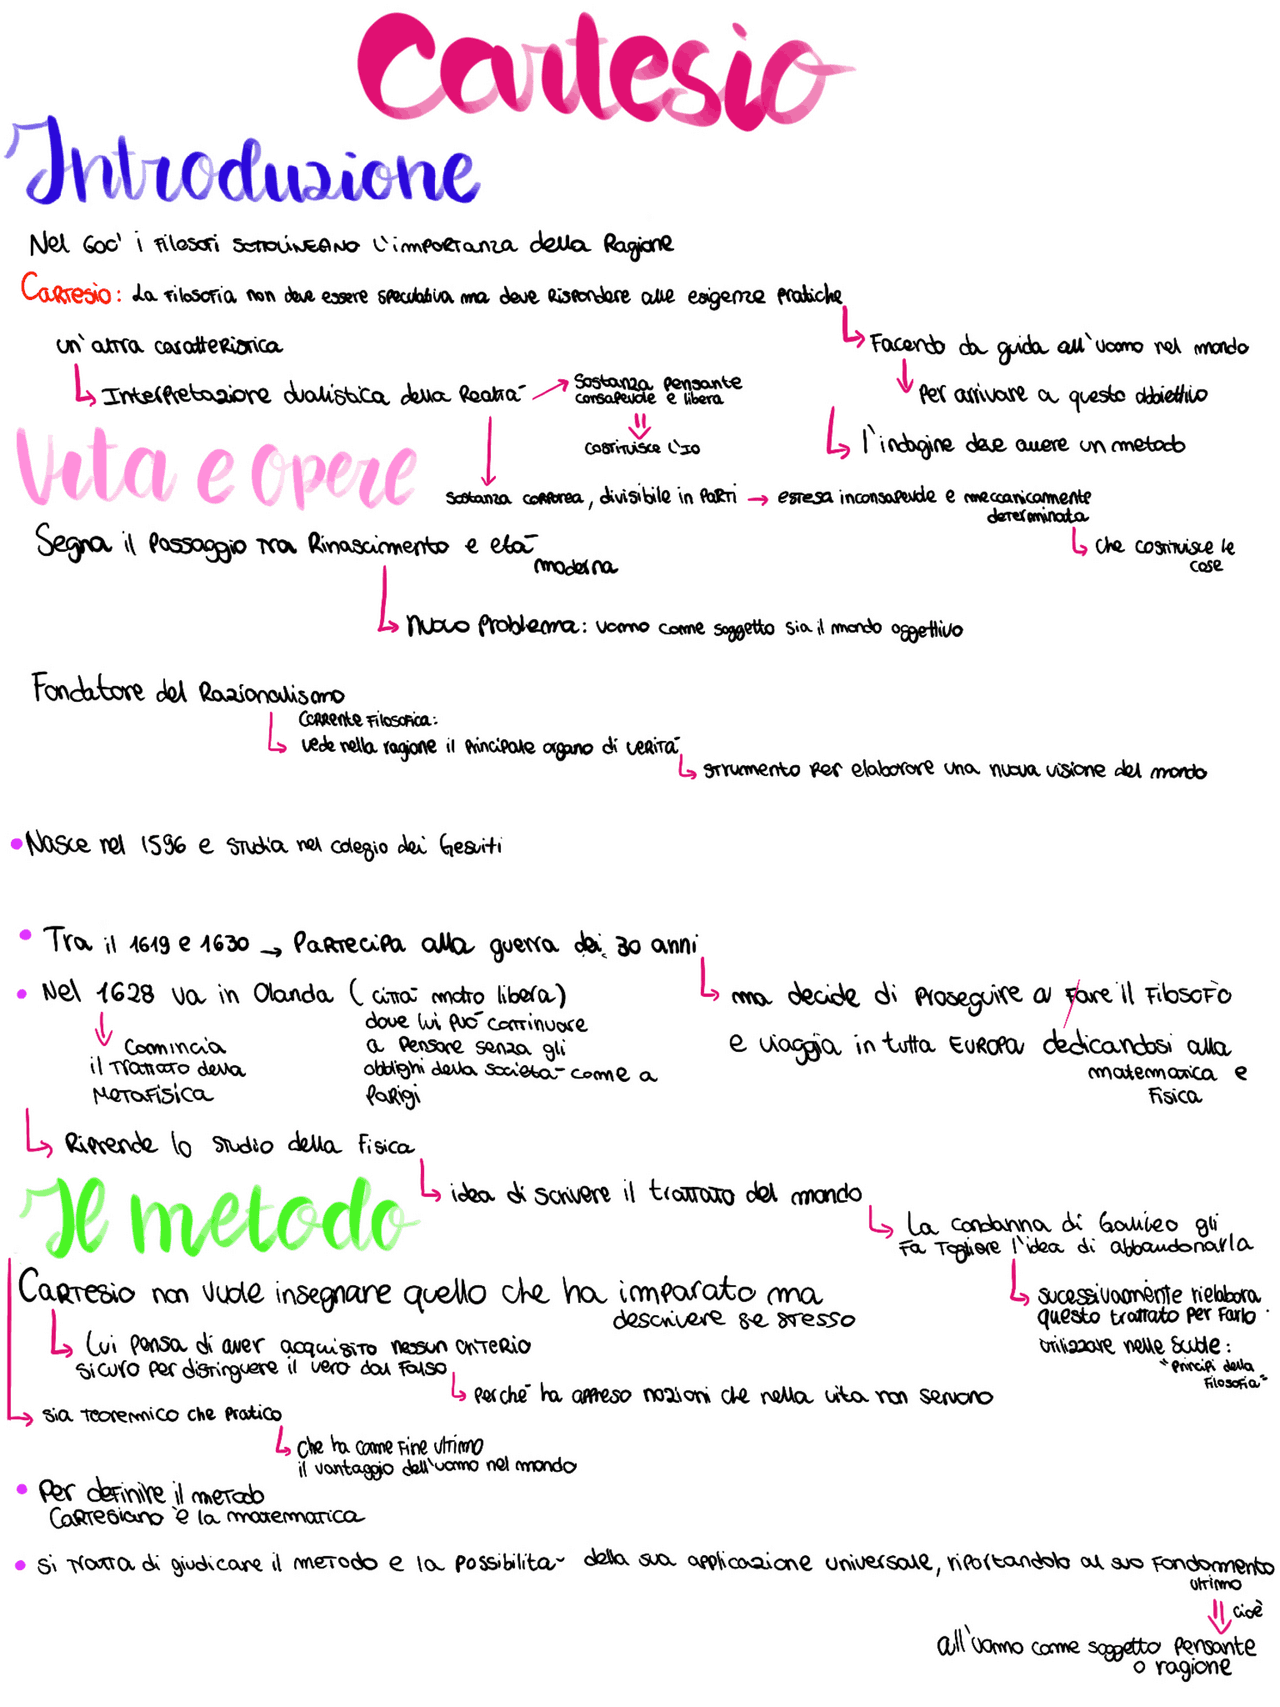 Cartesio
Introduzione
Nel 600' i filosofi sottolineano l'importanza della Ragione
Cartesio: La filosofia non deve essere speculativa ma deve rispondere alle esigenze pratiche
Facendo da guida all'uomo nel mondo
Per arrivare a questo obbiettivo
l'indagine deve avere un metodo
un'altra caratteristica
Interpretazione dualistica della Realtà
Sostanza pensante
consapevole e libera
costituisce l'Io
Sostanza corporea, divisibile in parti → estesa inconsapevole e meccanicamente
determinata
che costituisce le
cose
Vita e opere
Segna il passaggio tra Rinascimento e età
moderna
nuovo problema: uomo come soggetto sia il mondo oggettivo
Fondatore del Razionalismo
Corrente filosofica:
vede nella ragione il principale organo di verità
strumento per elaborare una nuova visione del mondo
• Nasce nel 1596 e studia nel colegio dei Gesuiti
• Tra il 1619 e 1630 → Partecipa alla guerra dei 30 anni
ma decide di proseguire a fare il filosofo
e viaggia in tutta Europa dedicandosi alla
matematica e
fisica
• Nel 1628 va in Olanda (città molto libera)
dove lui può continuare
a pensare senza gli
obblighi della società come a
Parigi
Comincia
il trattato della
metafisica
Riprende lo studio della fisica
idea di scrivere il trattato del mondo
La condanna di Galileo gli
fa togliere l'idea di abbandonarla
sucessivamente rielabora
questo trattato per farlo
utilizzare nelle scuole:
"Principi della
filosofia"
Il metodo
Cartesio non vuole insegnare quello che ha imparato ma
descrivere se stesso
Lui pensa di aver acquisito nessun criterio
sicuro per distinguere il vero dal falso
perché ha appreso nozioni che nella vita non servono
sia teoremico che pratico
che ha come fine ultimo
il vantaggio dell'uomo nel mondo
• Per definire il metodo
Cartesiano è la matematica
• Si tratta di giudicare il metodo e la possibilità della sua applicazione universale, riportandolo al suo fondamento
ultimo
cioè
all'uomo come soggetto pensante
o ragione